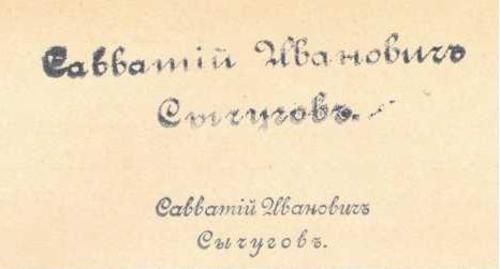 Савватій Ивановичъ
Сычуговъ.
Савватій Ивановичъ
Сычуговъ.